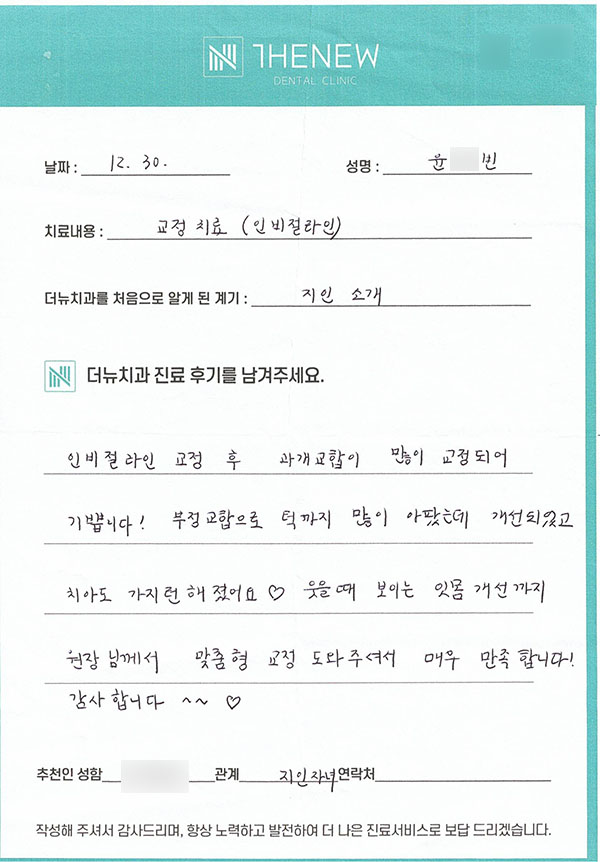 THENEW
DENTAL CLINIC
날짜 : 12. 30. 성명 : 윤 빈
치료내용 : 교정 치료 (인비절라인)
더뉴치과를 처음으로 알게 된 계기 : 지인 소개
더뉴치과 진료 후기를 남겨주세요.
인비절라인 교정 후 과개교합이 많이 교정되어
기쁩니다! 부정교합으로 턱까지 많이 아팠는데 개선되었고
치아도 가지런해졌어요 ♡ 웃을때 보이는 잇몸 개선까지
원장님께서 맞춤형 교정 도와주셔서 매우 만족합니다!
감사합니다 ^~ ♡
추천인 성함 관계 지인자녀 연락처
작성해 주셔서 감사드리며, 항상 노력하고 발전하여 더 나은 진료서비스로 보답 드리겠습니다.